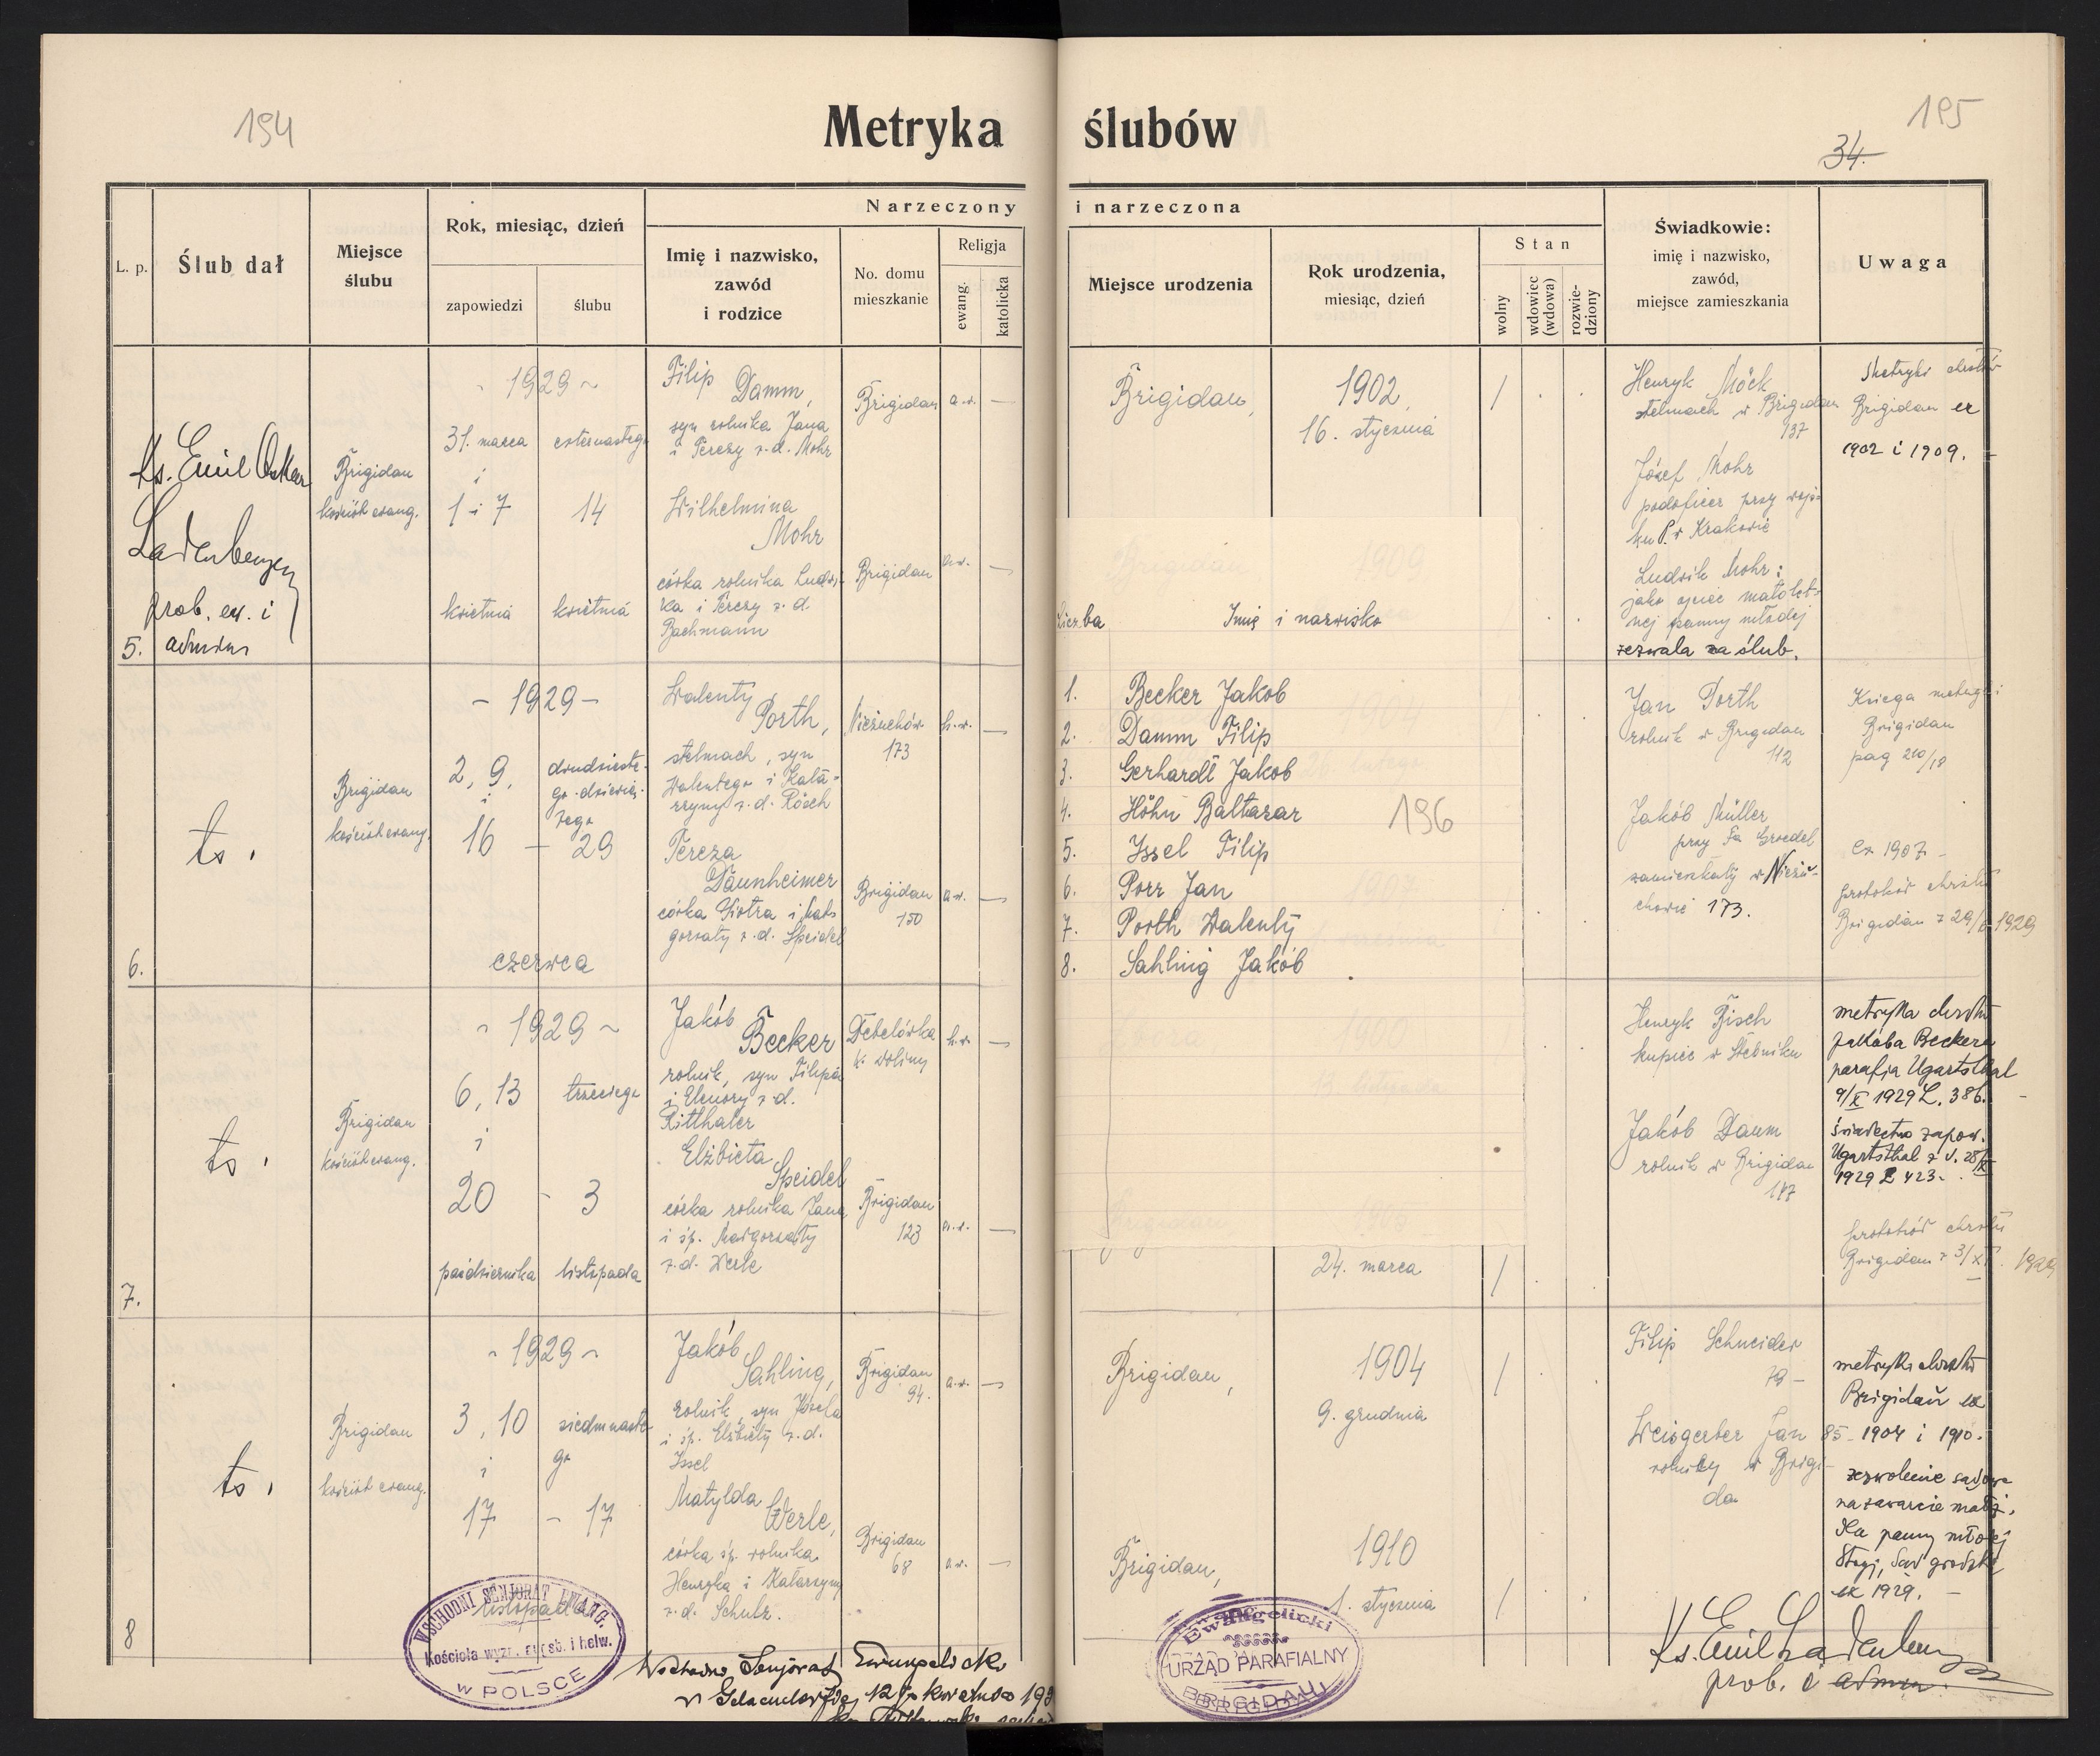 194
Metryka ślubów
195
34.
L. p.
Ślub dał
Miejsce
ślubu
Rok, miesiąc, dzień
zapowiedzi
ślubu
Narzeczony i narzeczona
Imię i nazwisko,
zawód
i rodzice
No. domu
mieszkanie
Religja
ewang.
katolicka
Miejsce urodzenia
Rok urodzenia,
miesiąc, dzień
Stan
wolny
wdowiec
(wdowa)
rozwie-
dziony
Świadkowie:
imię i nazwisko,
zawód,
miejsce zamieszkania
Uwaga
5.
Ks. Emil Oskar
Ladenberger
prob. ew. i
Brigidau
kościół ewang.
- 1929 -
31. marca
i
1 i 7
kwietnia
czternastego
14
kwietnia
Filip
Damm,
syn rolnika Jana
i Terezy z. d. Mohr
Brigidau
a.w. —
Wilhelmina
Mohr
córka rolnika Ludwi-
ka i Terezy z. d.
Bachmann
Brigidau
a.w. —
Brigidau,
1902,
16. stycznia
/
Henryk Möck
stelmach w Brigidau
137
Józef Mohr
podoficer przy wojs-
ku P. w Krakowie
Ludwik Mohr:
jako ojciec małolet-
nej panny młodej
zezwala na ślub.
Metryki chrztów
Brigidau ex
1902 i 1909.
6.
ts.
Brigidau
kościół ewang.
- 1929 -
2, 9,
i
16 -
dwudzieste-
go dziewią-
tego
29
czerwca
Walenty
Porth,
stelmach, syn
Walentego i Kata-
rzyny z. d. Rösch
Nieżuchów
173
h.w. —
Tereza
Daunheimer
córka Piotra i Mał-
gorzaty z. d. Speidel
Brigidau
150
a.w. —
Jan Porth
rolnik w Brigidau
112
Jakób Müller
przy Fa Groedel
zamieszkały w Nieżu-
chowie 173.
Księga metryk i
Brigidau
pag 210/18
ex 1907 -
protokół chrztu
Brigidau z 29/6 1929
Liczba
Imię i nazwisko
1. Becker Jakob
2. Damm Filip
3. Gerhardt Jakob
4. Höhn Baltazar
5. Issel Filip
6. Porr Jan
7. Porth Walenty
8. Sahling Jakób
196
7.
ts.
Brigidau
kościół ewang.
- 1929 -
6, 13
i
20 -
października
trzeciego
3
listopada
Jakób
Becker
rolnik, syn Filipa
i Elenory z. d.
Ritthaler
Debelówka
k. Doliny
h.w. —
Elżbieta
Speidel
córka rolnika Jana
i śp. Małgorzaty
z. d. Werle
Brigidau
123
a.w. —
24. marca
/
Henryk Bisch
kupiec w Stebniku
Jakób Daum
rolnik w Brigidau
147
metryka chrztu
Jakóba Beckera
parafia Ugartsthal
9/X 1929 L. 386.
świadectwo zapow.
Ugartsthal z d. 28/X
1929 L 423.
protokół chrztu
Brigidau z 3/XI. 1929
8
ts.
Brigidau
kościół ewang.
- 1929 -
3, 10
i
17
listopada
siedmnaste-
go
- 17
Jakób
Sahling,
rolnik, syn Józefa
i śp. Elżbiety z. d.
Issel
Brigidau
94.
a.w. —
Matylda
Werle,
córka śp. rolnika
Henryka i Katarzyny
z. d. Schulz.
Brigidau
68
a.w. —
Brigidau,
1904
9. grudnia
/
Brigidau,
1910
1. stycznia
/
Filip Schneider
79 -
Weisgerber Jan 85 -
rolnicy w Brigi-
dau
metryki chrztu
Brigidau ex
1904 i 1910.
zezwolenie sądowe
na zawarcie małż.
dla panny młodej
Stryj, Sąd grodzki
ex 1929. -
WSCHODNI SENJORAT EWANG.
Kościoła wyzn. augsb. i helw.
W POLSCE
Wschodni Senjorat Ewangelicki
Ewangelicki
URZĄD PARAFIALNY
BRIGIDAU
Ks. Emil Ladenberger
prob. i admin.